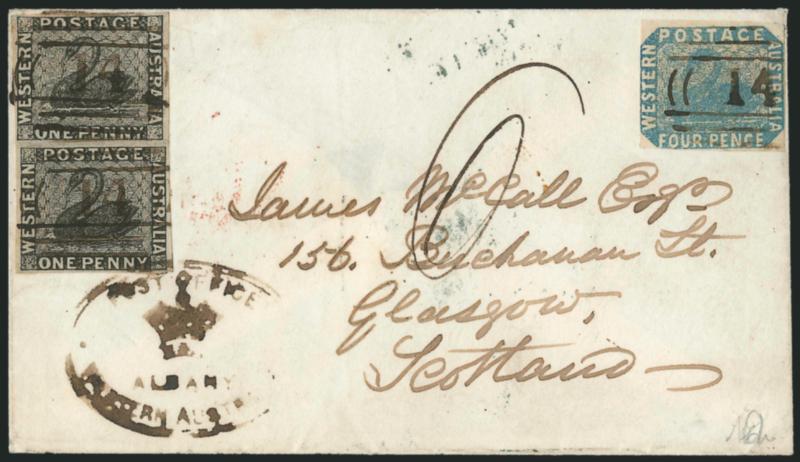 POSTAGE
WESTERN
AUSTRALIA
ONE PENNY
14
POSTAGE
WESTERN
AUSTRALIA
ONE PENNY
14
POSTAGE
WESTERN
AUSTRALIA
FOUR PENCE
14
6
James McCall Esqr
156. Buchanan St.
Glasgow,
Scotland
POST OFFICE
ALBANY
WESTERN AUSTRALIA